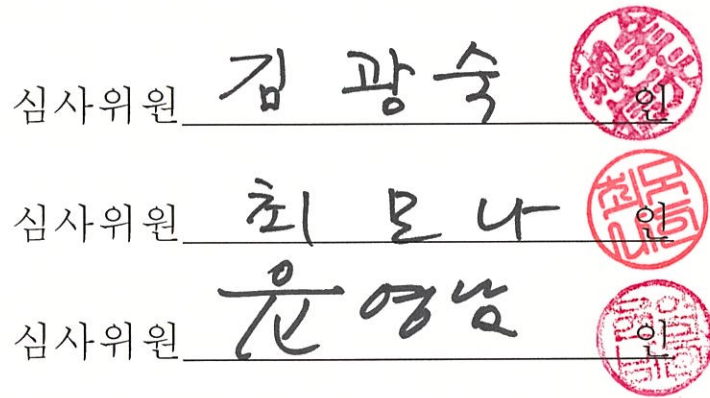 심사위원 김 광 숙 인
심사위원 최 모 나 인
심사위원 윤 영 남 인